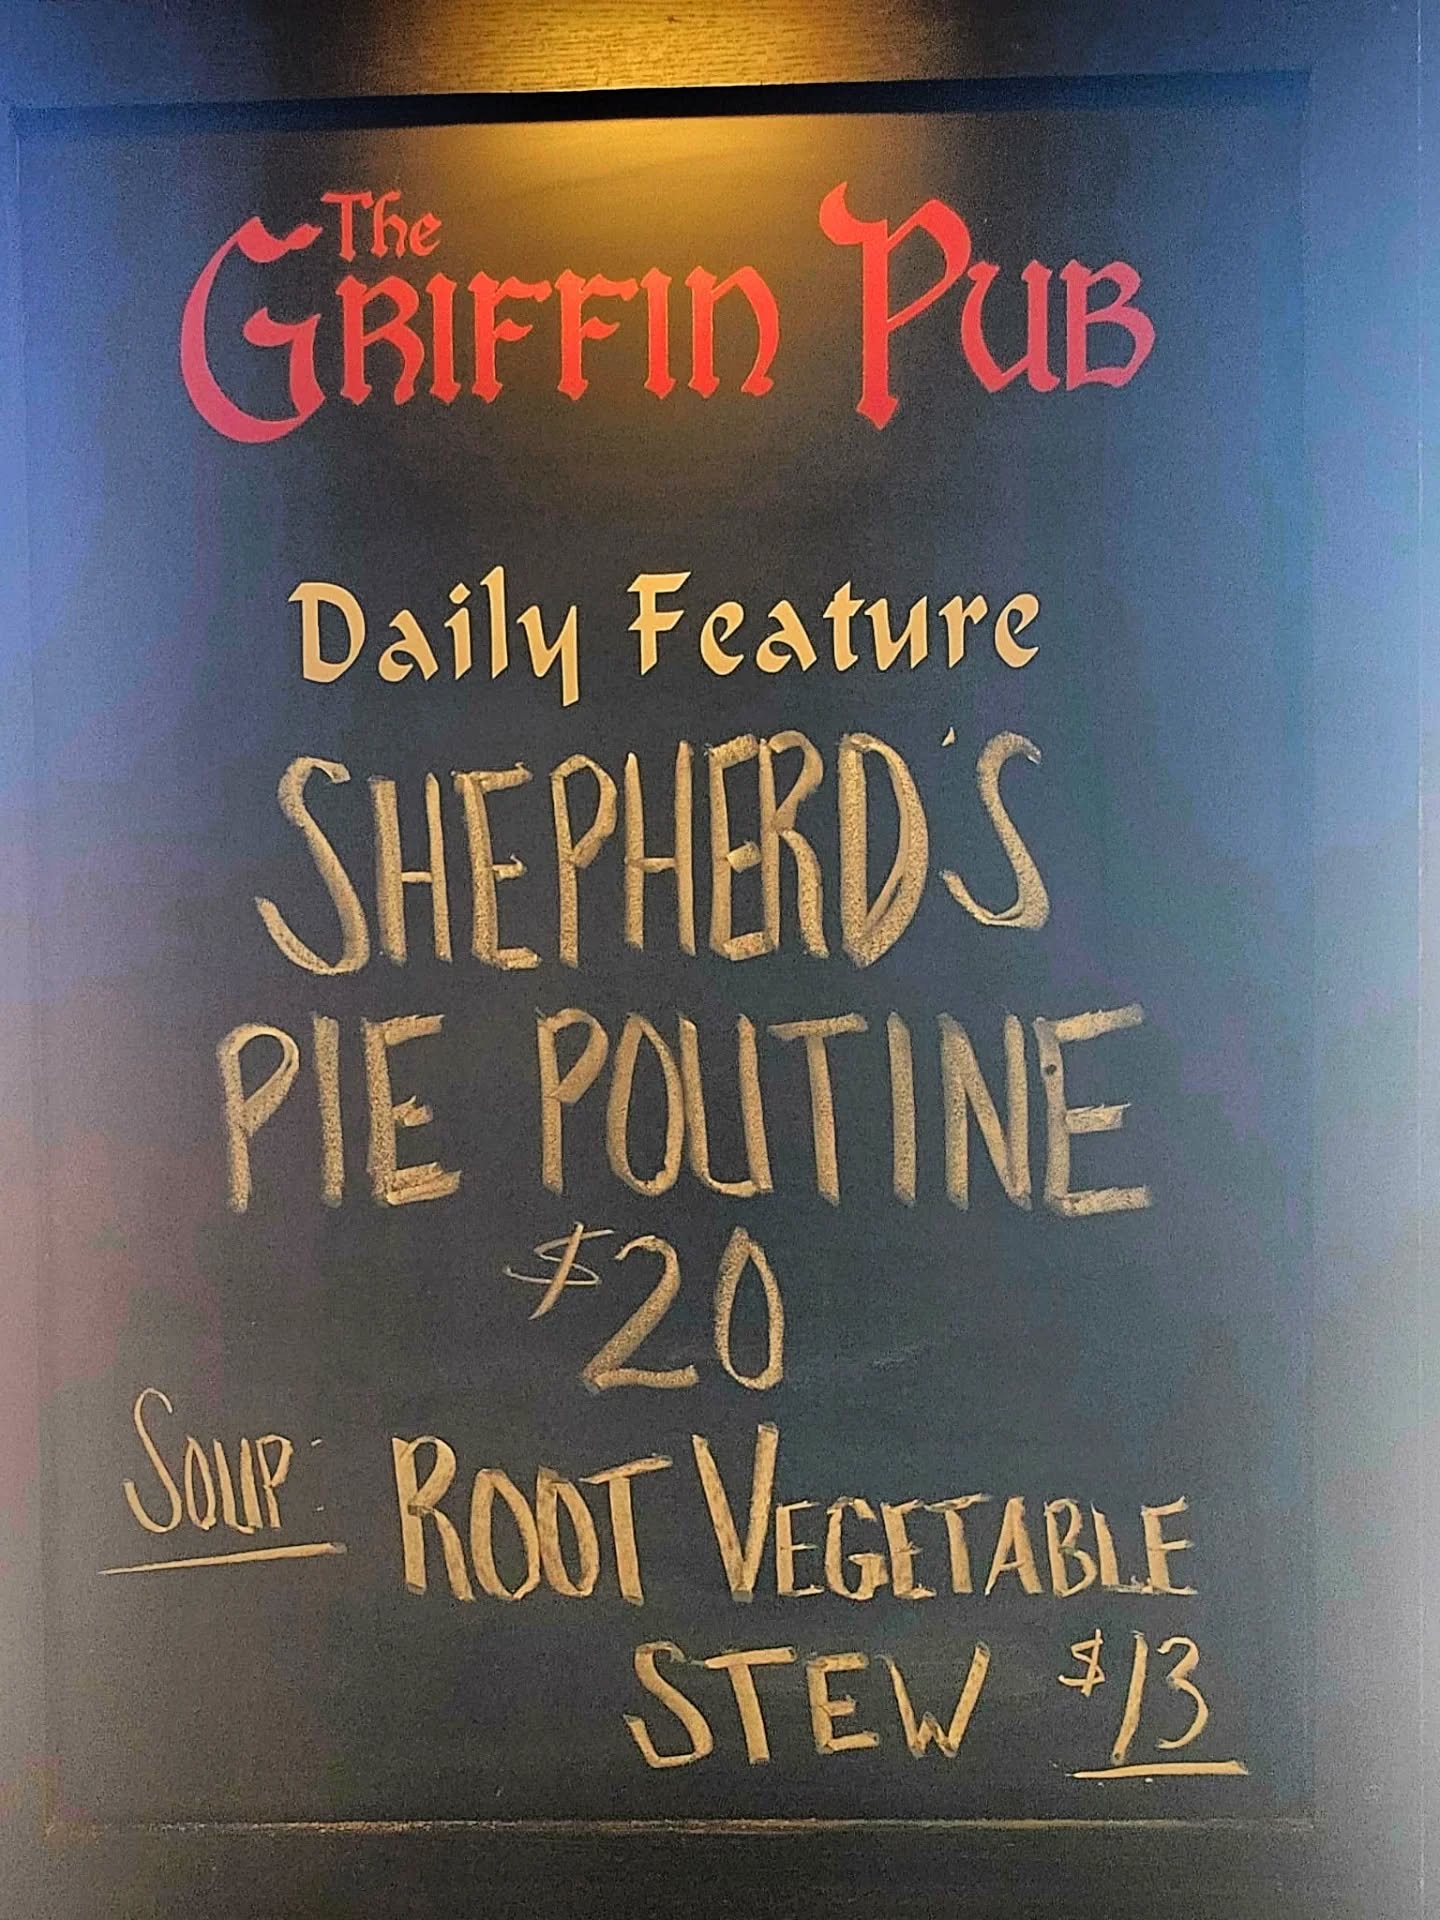 The
Griffin Pub
Daily Feature
SHEPHERD'S
PIE POUTINE
$20
SOUP: ROOT VEGETABLE
STEW $13